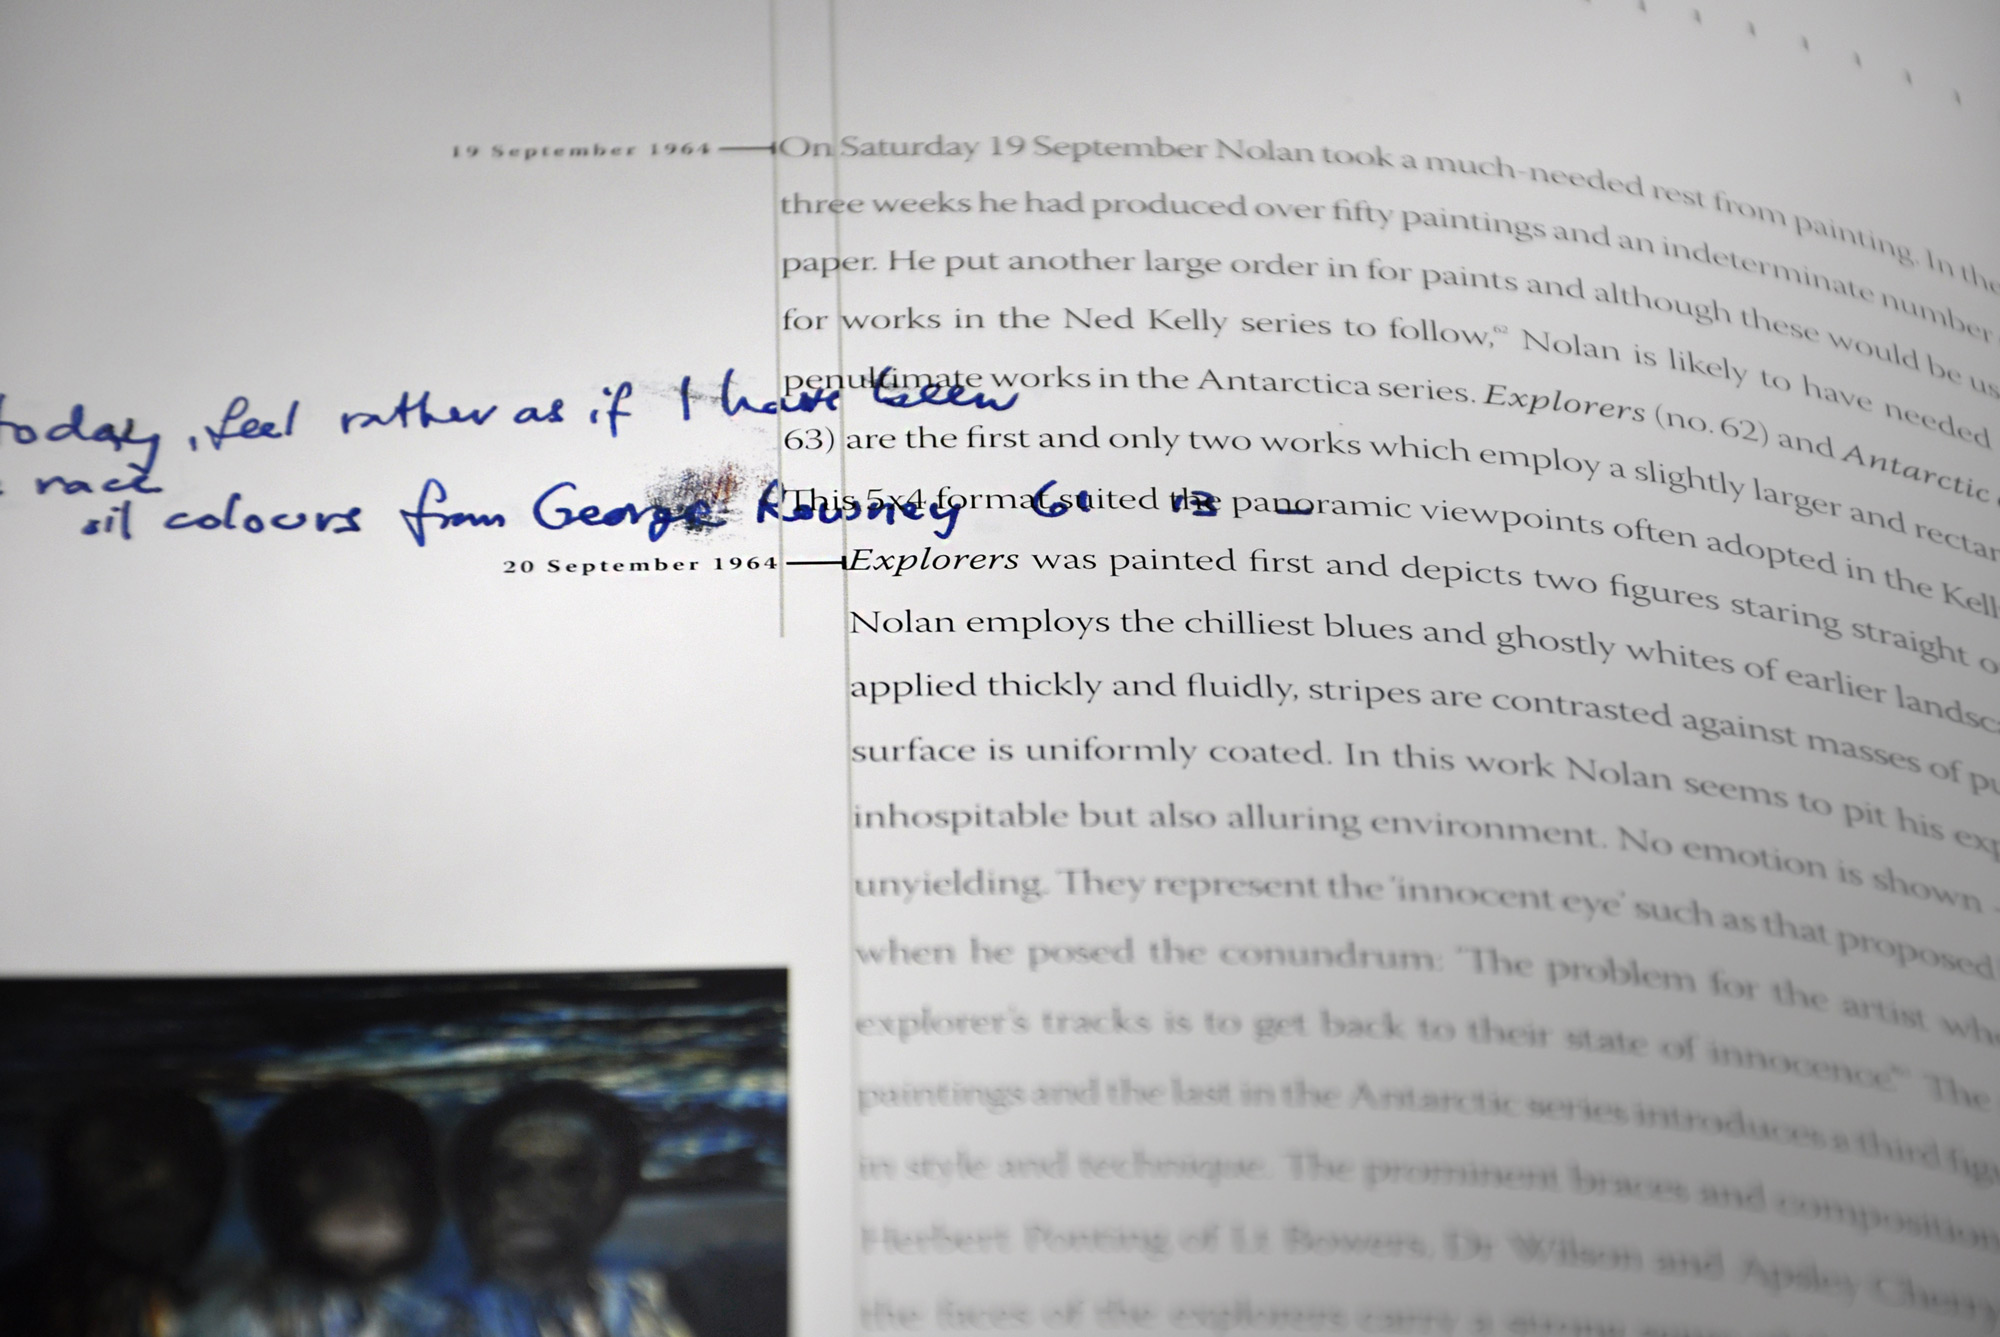 19 September 1964
On Saturday 19 September Nolan took a much-needed rest from painting. In the
three weeks he had produced over fifty paintings and an indeterminate number
paper. He put another large order in for paints and although these would be us
for works in the Ned Kelly series to follow,62 Nolan is likely to have needed
penultimate works in the Antarctica series. Explorers (no. 62) and Antarctic
today, feel rather as if I have been
63) are the first and only two works which employ a slightly larger and rectan
race
This 5x4 format suited the panoramic viewpoints often adopted in the Kell
oil colours from George Rowney 60 13 –
20 September 1964
Explorers was painted first and depicts two figures staring straight o
Nolan employs the chilliest blues and ghostly whites of earlier landsca
applied thickly and fluidly, stripes are contrasted against masses of pu
surface is uniformly coated. In this work Nolan seems to pit his exp
inhospitable but also alluring environment. No emotion is shown
unyielding. They represent the 'innocent eye' such as that proposed
when he posed the conundrum: "The problem for the artist who
explorer's tracks is to get back to their state of innocence" The
paintings and the last in the Antarctic series introduces a third figu
in style and technique. The prominent braces and composition
Herbert Ponting of Lt Bowers, Dr Wilson and Apsley Cherry
the faces of the explorers carry a strong